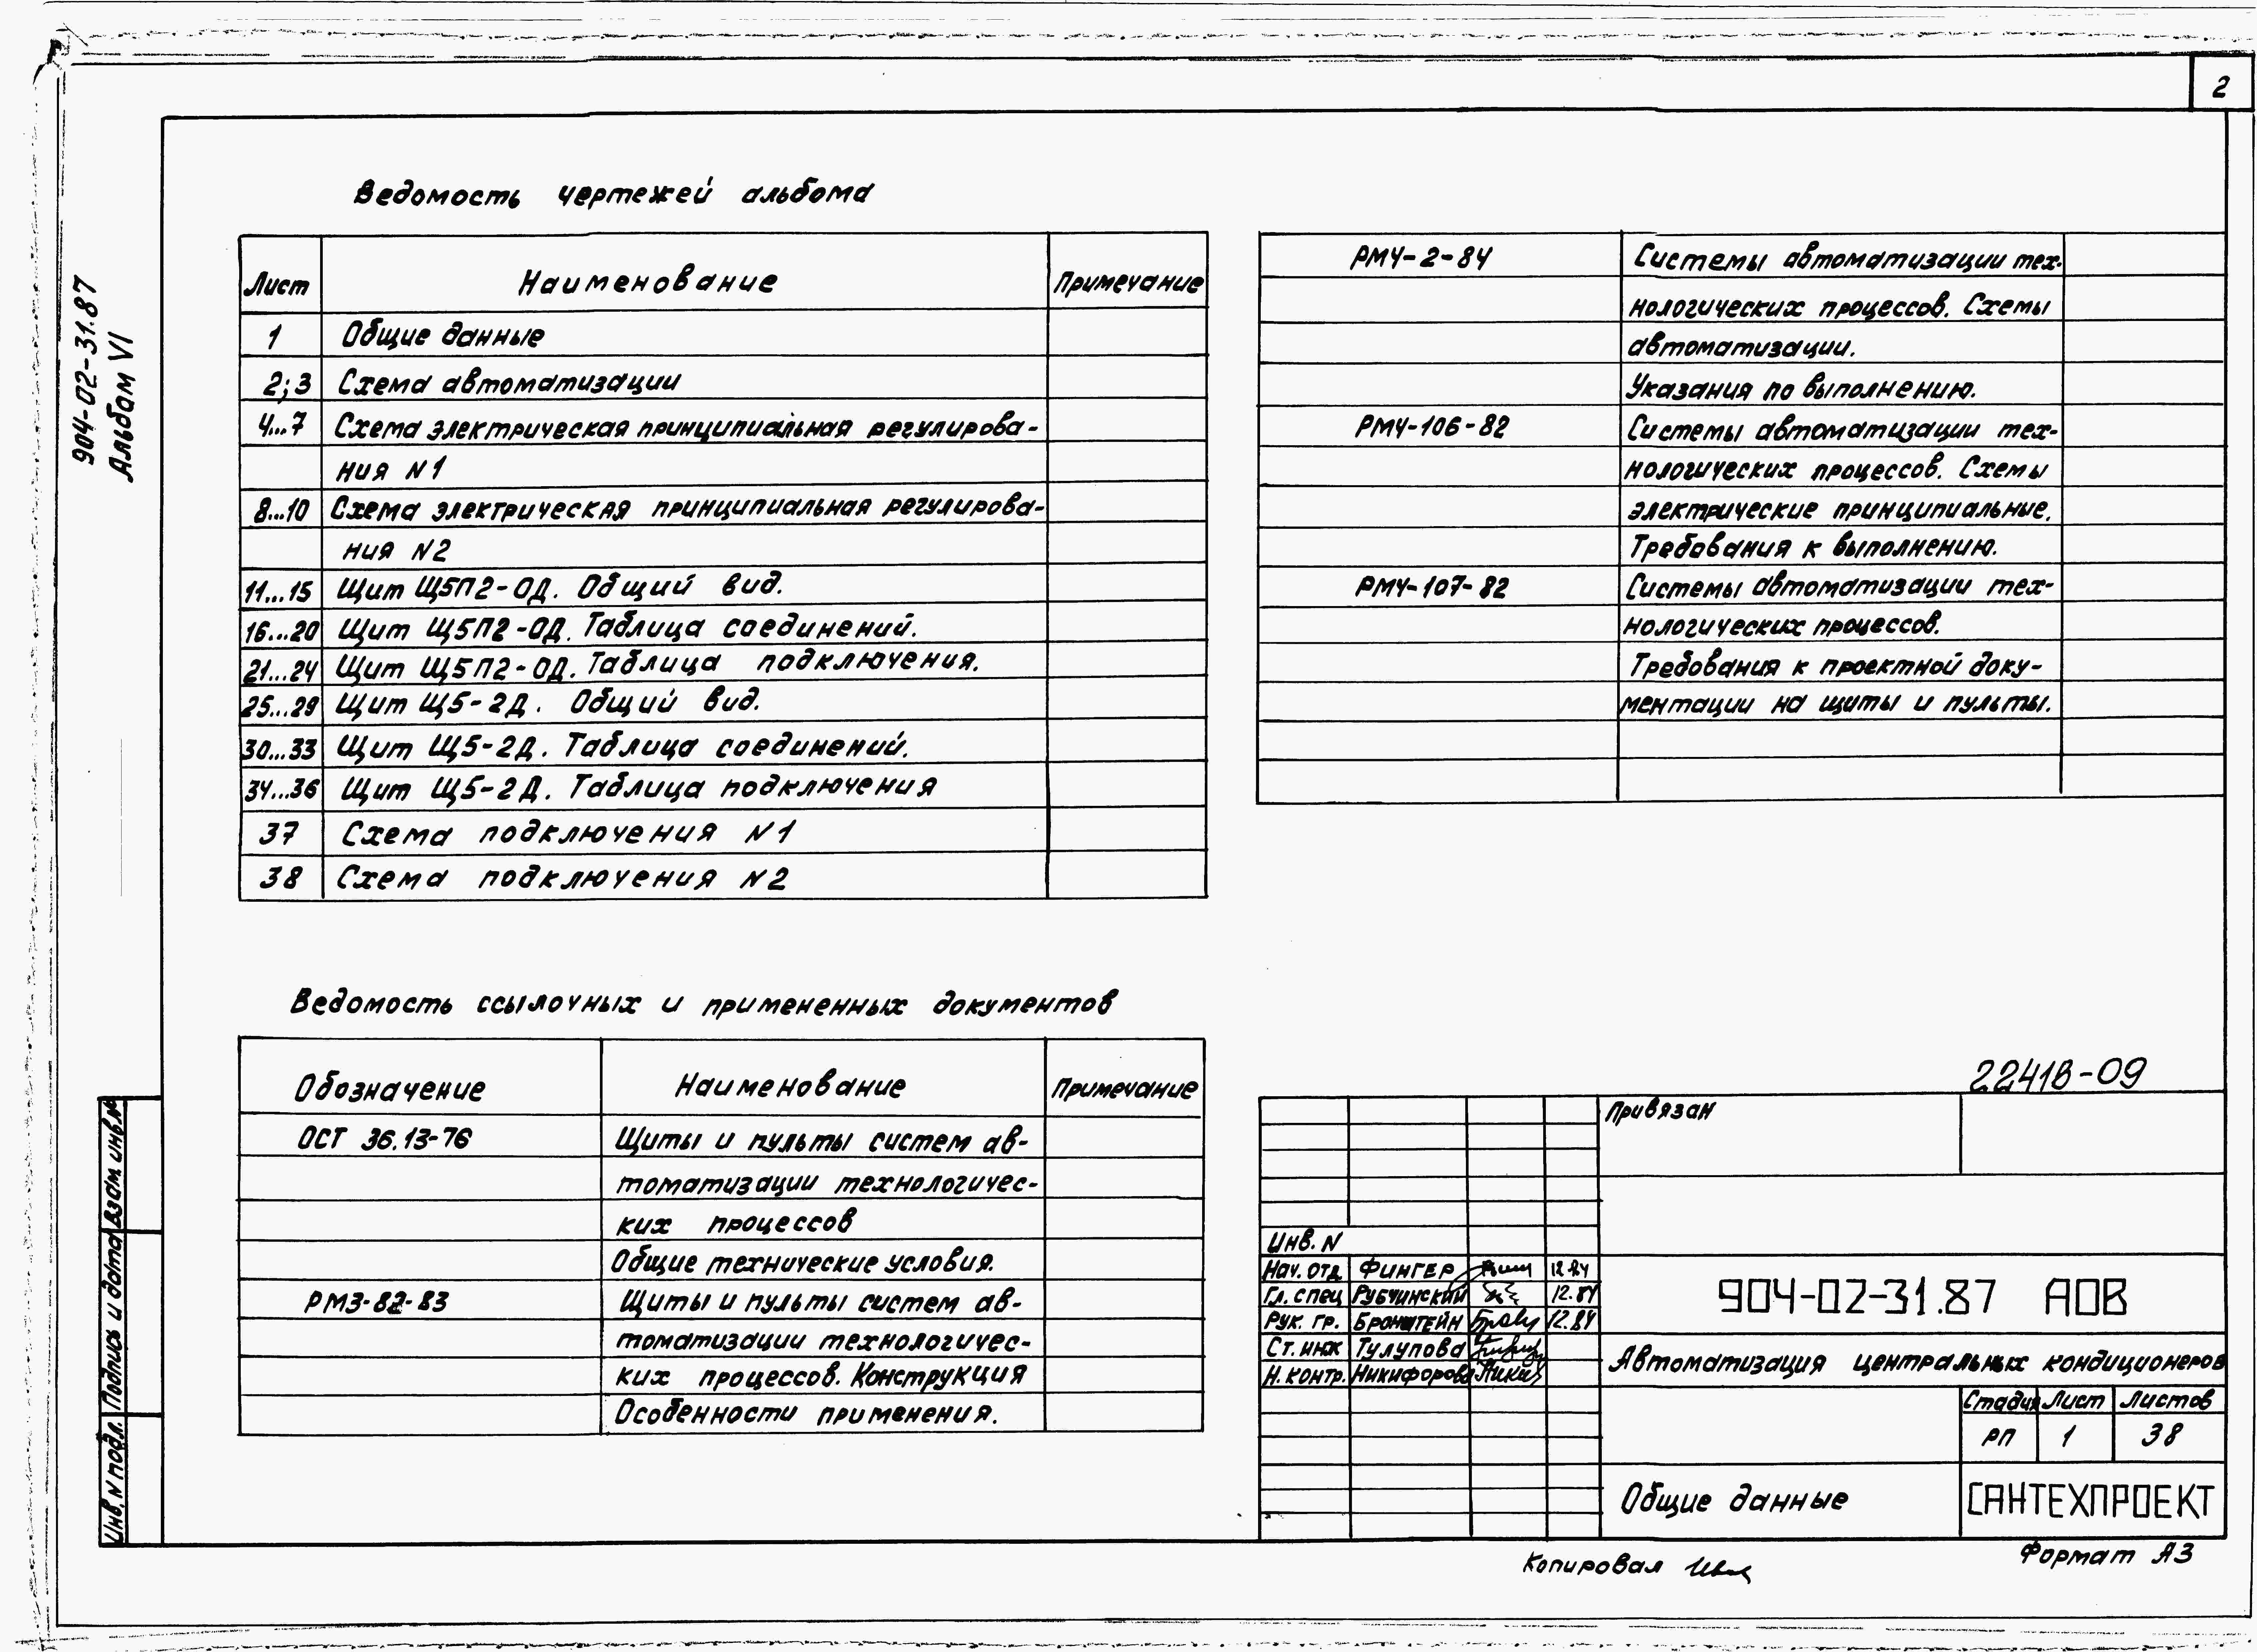 2
904-02-31.87
Альбом VI
Ведомость чертежей альбома
Лист Наименование Примечание
1 Общие данные
2;3 Схема автоматизации
4...7 Схема электрическая принципиальная регулирова-
ния N1
8...10 Схема электрическая принципиальная регулирова-
ния N2
11...15 Щит Щ5П2-ОД. Общий вид.
16...20 Щит Щ5П2-ОД. Таблица соединений.
21...24 Щит Щ5П2-ОД. Таблица подключения.
25...29 Щит Щ5-2Д. Общий вид.
30...33 Щит Щ5-2Д. Таблица соединений.
34...36 Щит Щ5-2Д. Таблица подключения
37 Схема подключения N1
38 Схема подключения N2
Ведомость ссылочных и примененных документов
Обозначение Наименование Примечание
ОСТ 36.13-76 Щиты и пульты систем ав-
томатизации технологичес-
ких процессов
Общие технические условия.
РМ3-82-83 Щиты и пульты систем ав-
томатизации технологичес-
ких процессов. Конструкция
Особенности применения.
РМ4-2-84 Системы автоматизации тех-
нологических процессов. Схемы
автоматизации.
Указания по выполнению.
РМ4-106-82 Системы автоматизации тех-
нологических процессов. Схемы
электрические принципиальные.
Требования к выполнению.
РМ4-107-82 Системы автоматизации тех-
нологических процессов.
Требования к проектной доку-
ментации на щиты и пульты.
2241В-09
Привязан
Инв. N
Нач. отд Фингер 12.84
Гл. спец Рубчинский 12.84
Рук. гр. Бронштейн 12.84
Ст. инж Тулупова
Н. контр. Никифорова
904-02-31.87 АОВ
Автоматизация центральных кондиционеров
Стадия Лист Листов
РП 1 38
Общие данные
САНТЕХПРОЕКТ
Копировал
Формат А3
Взам. инв. №
Подпись и дата
Инв. N подл.